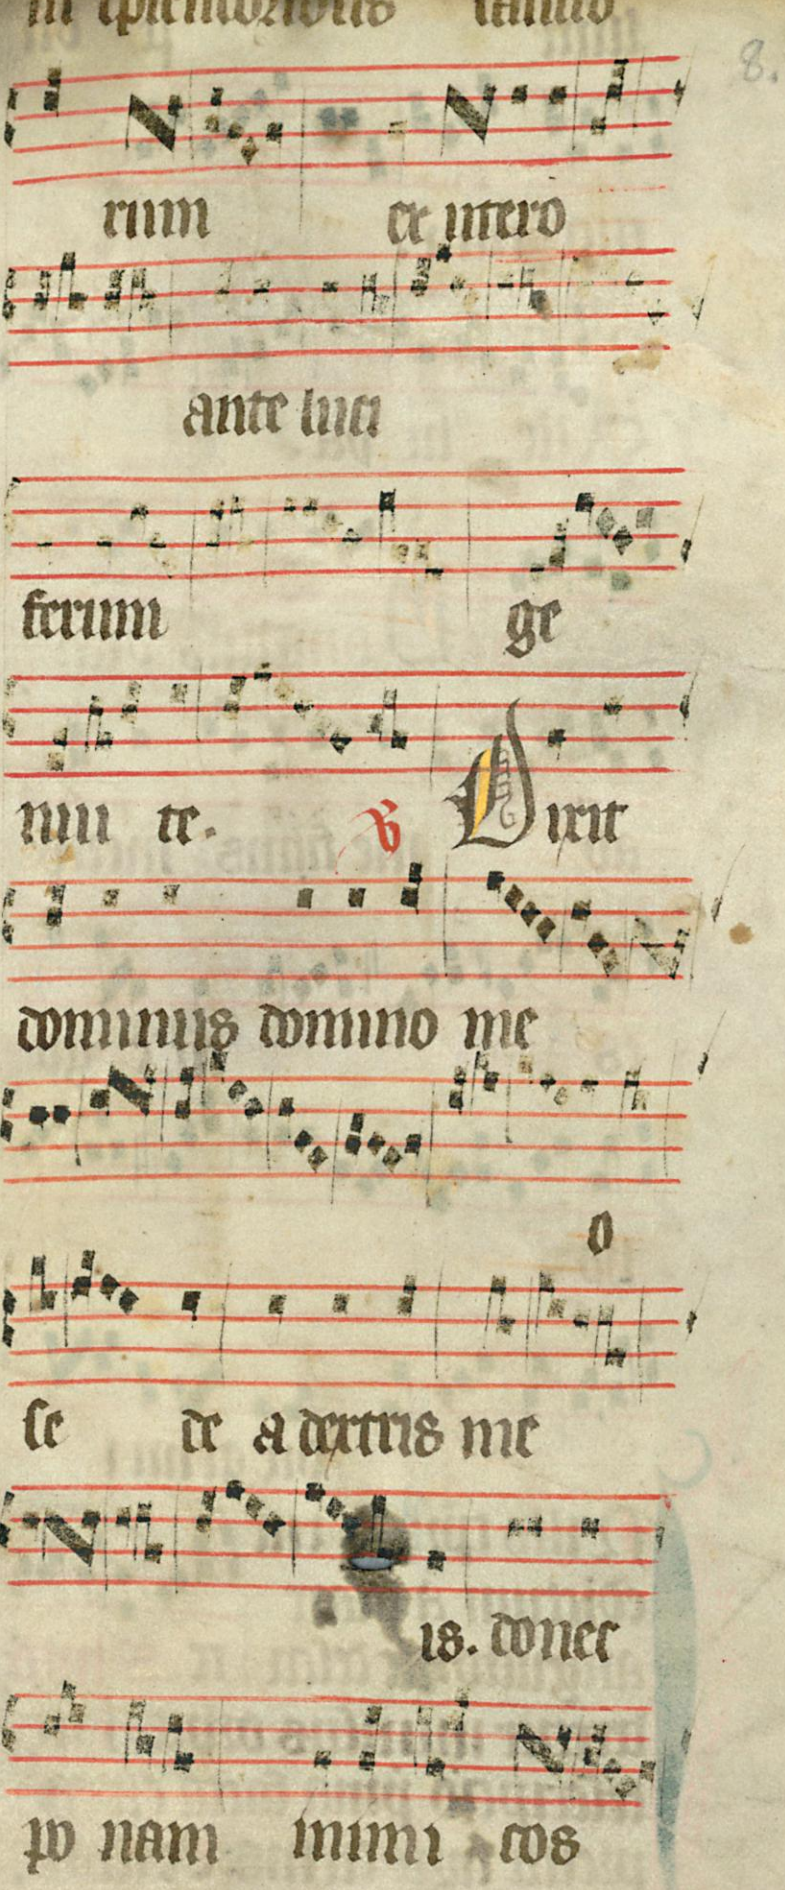 in splendoribus sancto
8.
rum ex utero
ante luci
ferum ge
nui te. ℣ Dixit
dominus domino me
o
se de a dextris me
is. donec
po nam inimi cos